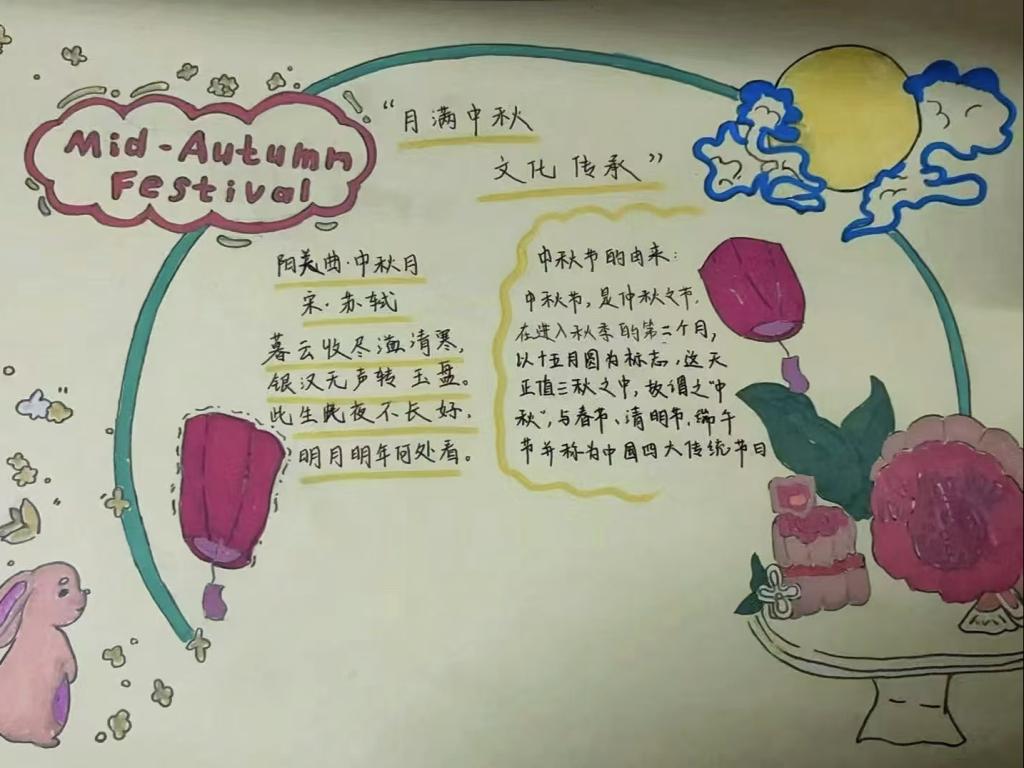 Mid-Autumn
Festival
“月满中秋
文化传承”
阳关曲·中秋月
宋·苏轼
暮云收尽溢清寒，
银汉无声转玉盘。
此生此夜不长好，
明月明年何处看。
中秋节的由来：
中秋节，是仲秋之节，
在进入秋季的第二个月，
以十五月圆为标志，这天
正值三秋之中，故谓之“中
秋”，与春节、清明节、端午
节并称为中国四大传统节日